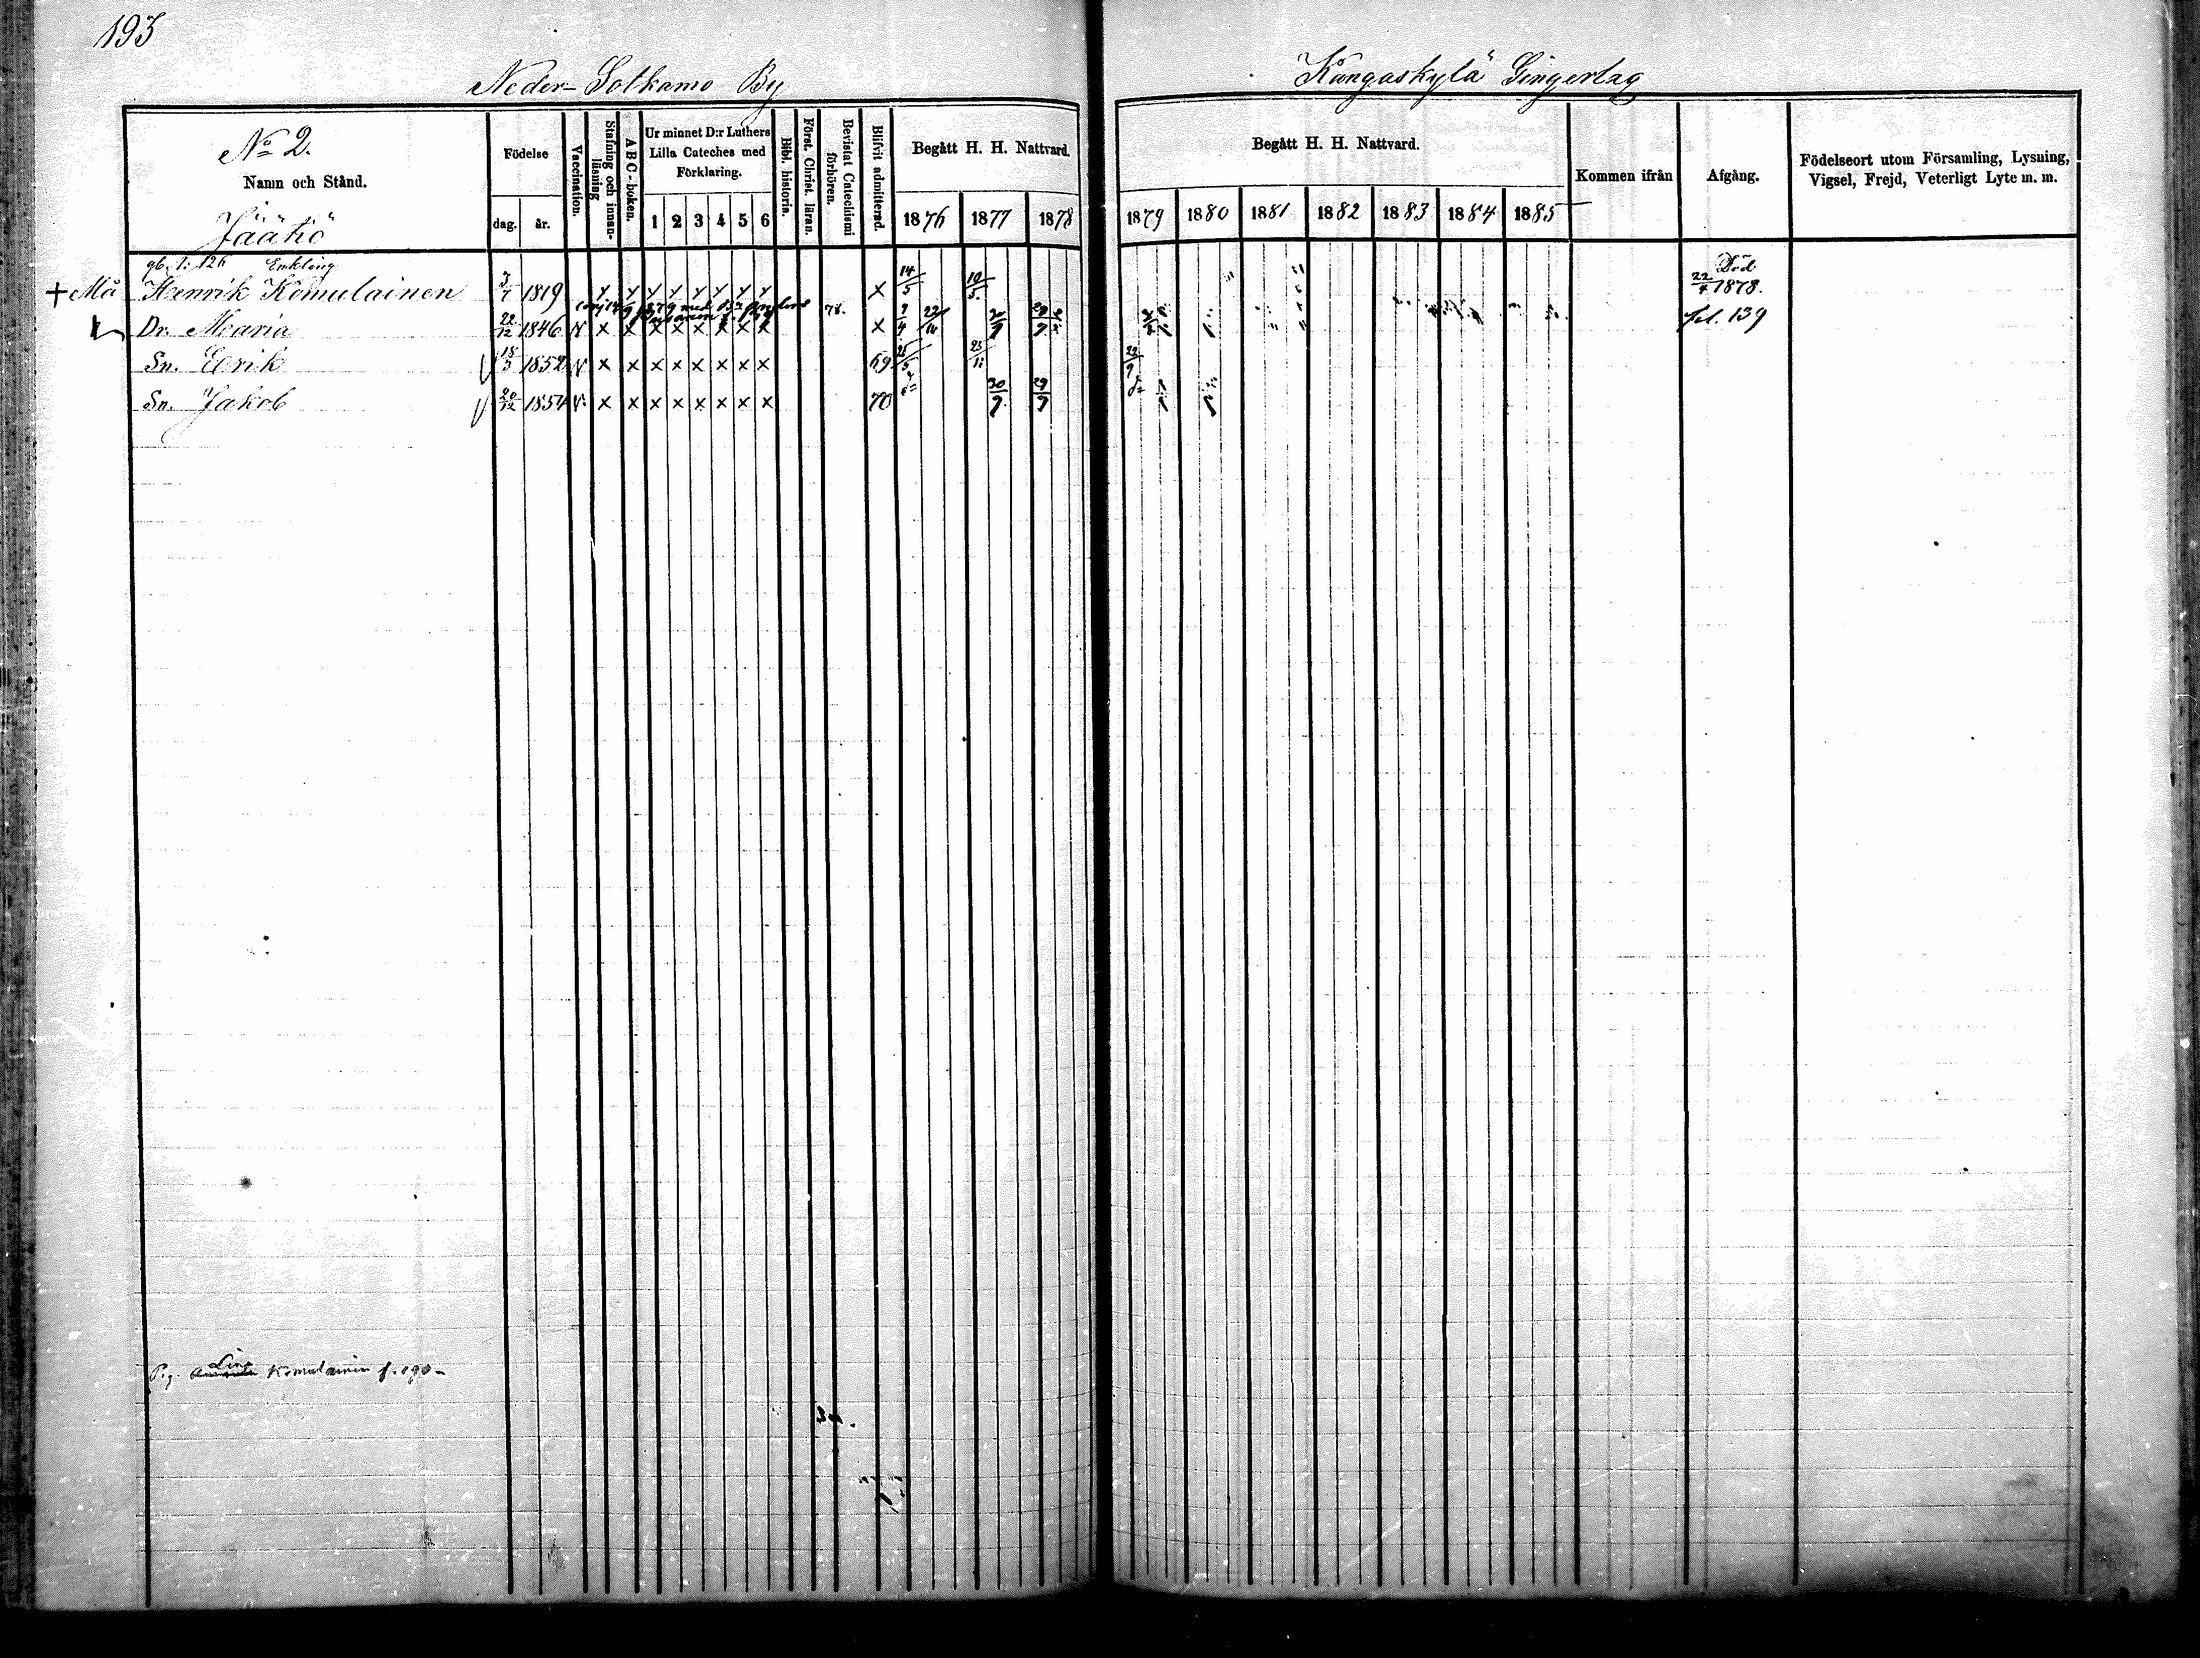 193
Neder-Sotkamo By
Kangaskylä Gingerlag
No 2.
Namn och Stånd.
Jääkö
Födelse
dag. år.
Vaccination.
Stafning och innanläsning
A B C-boken.
Ur minnet D:r Luthers Lilla Cateches med Förklaring.
1 2 3 4 5 6
Bibl. historia.
Först. Christ. läran.
Bevistat Catechismi förhören.
Blifvit admitterad.
Begått H. H. Nattvard.
1876 1877 1878
Begått H. H. Nattvard.
1879 1880 1881 1882 1883 1884 1885
Kommen ifrån
Afgång.
Födelseort utom Församling, Lysning, Vigsel, Frejd, Veterligt Lyte m. m.
gb. 1: 126 Enkling
+ Må Henrik Komulainen 3/7 1819 y y y y y y y y x 14/5 10/5. Död 22/4 1878.
Dr. Maria 22/12 1846 v x x x x x x x x 78. x 22/10 29/9 fol. 139
Sn. Erik 18/3 1852 v x x x x x x x x 69 25/5 23/11 22/9
Sn. Jakob 20/12 1854 v. x x x x x x x x 70 30/9 29/9
Pig. Lina Komulainen f. 190